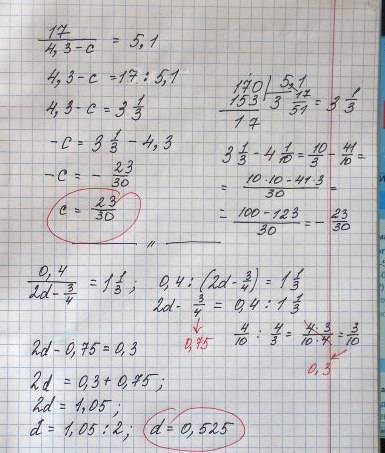 17/(4,3-c) = 5,1
4,3-c = 17 : 5,1
4,3-c = 3 1/3
-c = 3 1/3 - 4,3
-c = - 23/30
c = 23/30
170 | 5,1
153 | 3 17/51 = 3 1/3
17
3 1/3 - 4 1/10 = 10/3 - 41/10 =
= (10·10-41·3)/30 =
= (100-123)/30 = - 23/30
——— " ———
0,4/(2d-3/4) = 1 1/3 ; 0,4 : (2d-3/4) = 1 1/3
2d- 3/4 = 0,4 : 1 1/3
0,75
4/10 : 4/3 = (4·3)/(10·4) = 3/10
0,3
2d-0,75 = 0,3
2d = 0,3 + 0,75 ;
2d = 1,05 ;
d = 1,05 : 2 ; d = 0,525